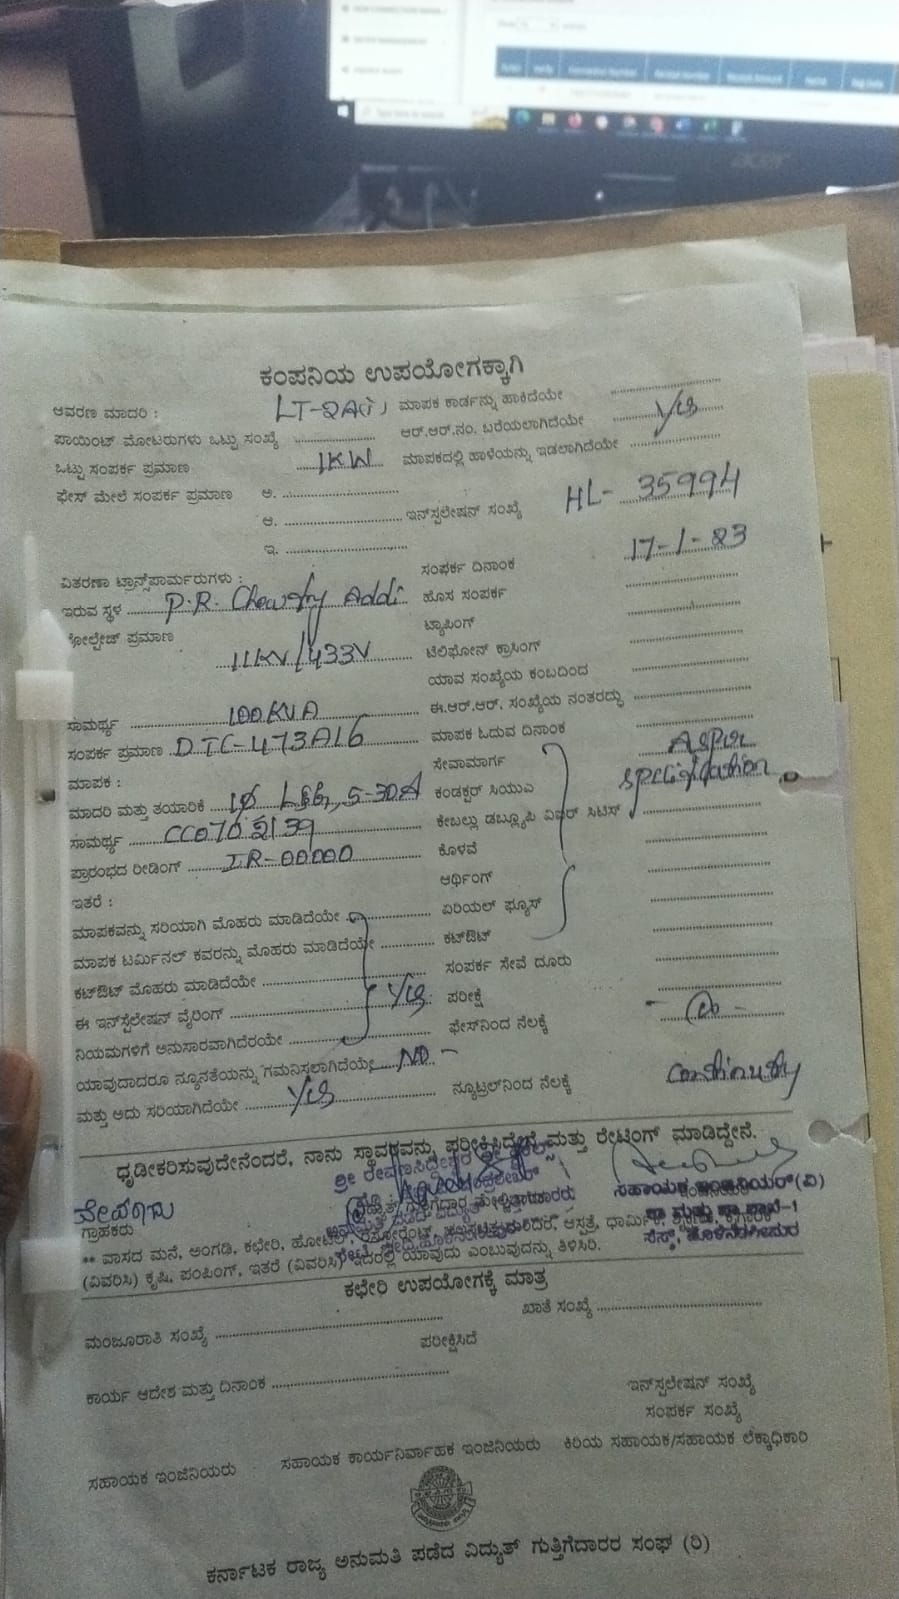 Type here to search
acer
ಕಂಪನಿಯ ಉಪಯೋಗಕ್ಕಾಗಿ
ಆವರಣ ಮಾದರಿ : LT-2A(i) ಮಾಪಕ ಕಾರ್ಡನ್ನು ಹಾಕಿದೆಯೇ
ಪಾಯಿಂಟ್ ಮೋಟರುಗಳು ಒಟ್ಟು ಸಂಖ್ಯೆ ಆರ್.ಆರ್.ನಂ. ಬರೆಯಲಾಗಿದೆಯೇ Yes
ಒಟ್ಟು ಸಂಪರ್ಕ ಪ್ರಮಾಣ 1KW ಮಾಪಕದಲ್ಲಿ ಹಾಳೆಯನ್ನು ಇಡಲಾಗಿದೆಯೇ
ಫೇಸ್ ಮೇಲೆ ಸಂಪರ್ಕ ಪ್ರಮಾಣ ಅ.
ಆ. ಇನ್‌ಸ್ಟಲೇಷನ್ ಸಂಖ್ಯೆ HL- 35994
ಇ.
ಸಂಪರ್ಕ ದಿನಾಂಕ 17-1-23
ವಿತರಣಾ ಟ್ರಾನ್ಸ್‌ಫಾರ್ಮರುಗಳು :
ಇರುವ ಸ್ಥಳ P.R. Addi ಹೊಸ ಸಂಪರ್ಕ
ವೋಲ್ಟೇಜ್ ಪ್ರಮಾಣ 11KV/433V ಟ್ಯಾಪಿಂಗ್
ಟೆಲಿಫೋನ್ ಕ್ರಾಸಿಂಗ್
ಯಾವ ಸಂಖ್ಯೆಯ ಕಂಬದಿಂದ
ಸಾಮರ್ಥ್ಯ 100KVA ಈ.ಆರ್.ಆರ್. ಸಂಖ್ಯೆಯ ನಂತರದ್ದು
ಸಂಪರ್ಕ ಪ್ರಮಾಣ DTC-473A16 ಮಾಪಕ ಓದುವ ದಿನಾಂಕ
ಮಾಪಕ : ಸೇವಾಮಾರ್ಗ Asper
ಮಾದರಿ ಮತ್ತು ತಯಾರಿಕೆ 1ø L&G, 5-30A ಕಂಡಕ್ಟರ್ ಸಿಯುಎ specification
ಸಾಮರ್ಥ್ಯ ಕೇಬಲ್ಲು ಡಬ್ಲ್ಯೂಪಿ ವಿಐಆರ್ ಸಿಟಿಸ್
ಪ್ರಾರಂಭದ ರೀಡಿಂಗ್ IR-00000 ಕೊಳವೆ
ಇತರೆ : ಆರ್ಥಿಂಗ್
ಮಾಪಕವನ್ನು ಸರಿಯಾಗಿ ಮೊಹರು ಮಾಡಿದೆಯೇ ಏರಿಯಲ್ ಫ್ಯೂಸ್
ಮಾಪಕ ಟರ್ಮಿನಲ್ ಕವರನ್ನು ಮೊಹರು ಮಾಡಿದೆಯೇ ಕಟ್‌ಔಟ್
ಕಟ್‌ಔಟ್ ಮೊಹರು ಮಾಡಿದೆಯೇ ಸಂಪರ್ಕ ಸೇವೆ ದೂರು
ಈ ಇನ್‌ಸ್ಟಲೇಷನ್ ವೈರಿಂಗ್ Yes ಪರೀಕ್ಷೆ
ನಿಯಮಗಳಿಗೆ ಅನುಸಾರವಾಗಿದೆರಯೇ ಫೇಸ್‌ನಿಂದ ನೆಲಕ್ಕೆ
ಯಾವುದಾದರೂ ನ್ಯೂನತೆಯನ್ನು ಗಮನಿಸಲಾಗಿದೆಯೇ NO -
ಮತ್ತು ಅದು ಸರಿಯಾಗಿದೆಯೇ Yes ನ್ಯೂಟ್ರಲ್‌ನಿಂದ ನೆಲಕ್ಕೆ Continuity
ಧೃಡೀಕರಿಸುವುದೇನೆಂದರೆ, ನಾನು ಸ್ಥಾವರವನ್ನು ಪರೀಕ್ಷಿಸಿದ್ದೇನೆ ಮತ್ತು ರೇಟಿಂಗ್ ಮಾಡಿದ್ದೇನೆ.
ಸಹಾಯಕ ಇಂಜಿನಿಯರ್(ವಿ)
ಗ್ರಾಹಕರು
** ವಾಸದ ಮನೆ, ಅಂಗಡಿ, ಕಛೇರಿ, ಹೋಟೆಲ್ ಆಸ್ಪತ್ರೆ, ಧಾರ್ಮಿಕ,
(ವಿವರಿಸಿ) ಕೃಷಿ, ಪಂಪಿಂಗ್, ಇತರೆ (ವಿವರಿಸಿ) ಇದರಲ್ಲಿ ಯಾವುದು ಎಂಬುವುದನ್ನು ತಿಳಿಸಿರಿ.
ಕಛೇರಿ ಉಪಯೋಗಕ್ಕೆ ಮಾತ್ರ
ಮಂಜೂರಾತಿ ಸಂಖ್ಯೆ ಖಾತೆ ಸಂಖ್ಯೆ
ಪರೀಕ್ಷಿಸಿದೆ
ಕಾರ್ಯ ಆದೇಶ ಮತ್ತು ದಿನಾಂಕ
ಇನ್‌ಸ್ಟಲೇಷನ್ ಸಂಖ್ಯೆ
ಸಂಪರ್ಕ ಸಂಖ್ಯೆ
ಸಹಾಯಕ ಇಂಜಿನಿಯರು ಸಹಾಯಕ ಕಾರ್ಯನಿರ್ವಾಹಕ ಇಂಜಿನಿಯರು ಕಿರಿಯ ಸಹಾಯಕ/ಸಹಾಯಕ ಲೆಕ್ಕಾಧಿಕಾರಿ
ಕರ್ನಾಟಕ ರಾಜ್ಯ ಅನುಮತಿ ಪಡೆದ ವಿದ್ಯುತ್ ಗುತ್ತಿಗೆದಾರರ ಸಂಘ (ರಿ)